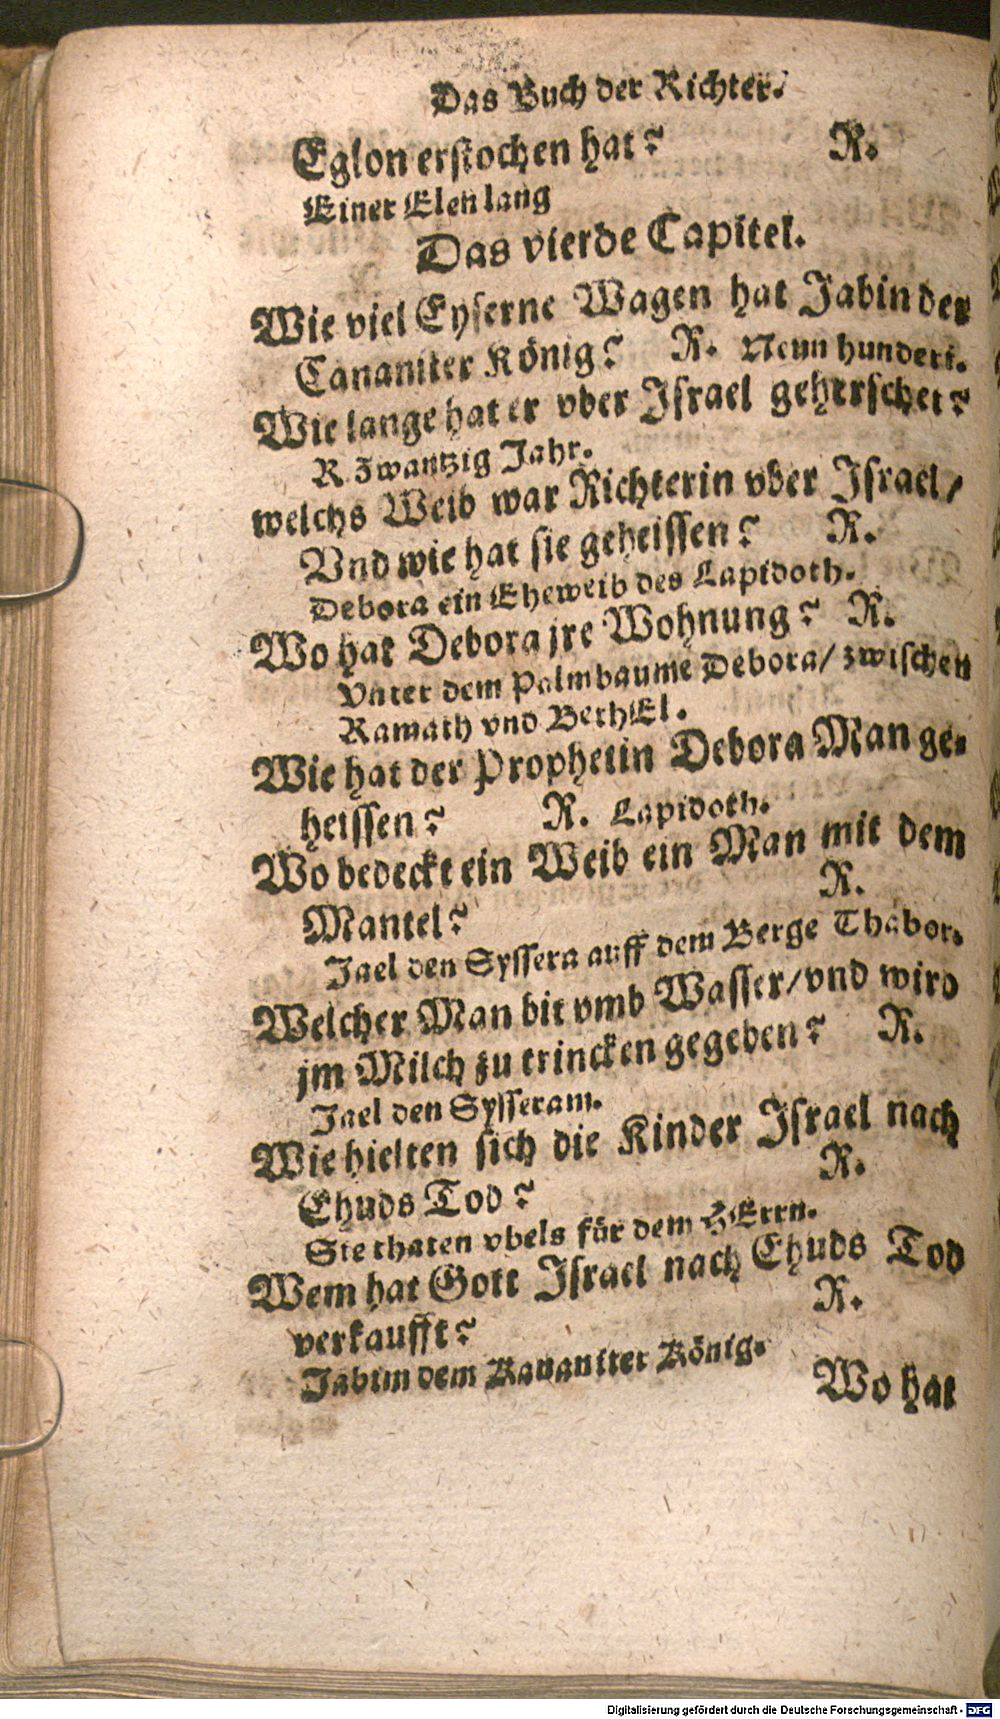 Das Buch der Richter.
Eglon erstochen hat? R.
Einer Elen lang
Das vierde Capitel.
Wie viel Eyserne Wagen hat Jabin der
Cananiter König? R. Neun hundert.
Wie lange hat er vber Israel geherschet?
R Zwantzig Jahr.
welchs Weib war Richterin vber Israel/
Vnd wie hat sie geheissen? R.
Debora ein Eheweib des Lapidoth.
Wo hat Debora jre Wohnung? R.
Vnter dem Palmbaume Debora/ zwischen
Ramath vnd BethEl.
Wie hat der Prophetin Debora Man ge-
heissen? R. Lapidoth.
Wo bedeckt ein Weib ein Man mit dem
Mantel? R.
Jael den Syssera auff dem Berge Thabor.
Welcher Man bit vmb Wasser/ vnd wird
jm Milch zu trincken gegeben? R.
Jael den Sysseram.
Wie hielten sich die Kinder Israel nach
Ehuds Tod? R.
Sie thaten vbels für dem HErrn.
Wem hat Gott Israel nach Ehuds Tod
verkaufft? R.
Jabim dem Kananiter König.
Wo hat
Digitalisierung gefördert durch die Deutsche Forschungsgemeinschaft - DFG